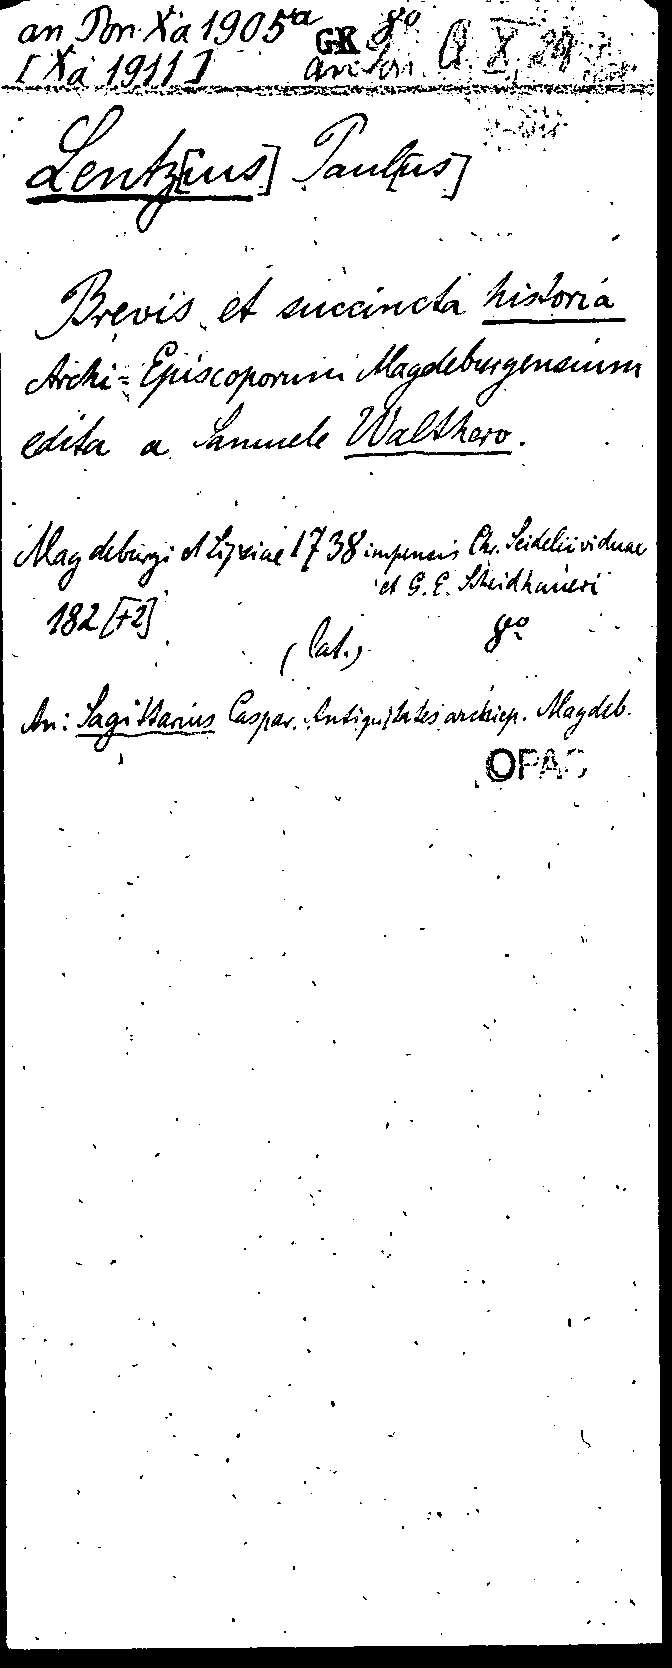 an Pon Xa 1905 a GK 8º
[Xa 1911] an Pon. Q X, 28
Lentz[ius] Paul[us]
Brevis et succincta historia
Archi-Episcoporum Magdeburgensium
edita a Samuele Walthero.
Magdeburgi et Lipsiae 1738 impensis Chr. Seidelii viduae
et G. E. Scheidhaueri
182 [+2]
(lat.) 8º
An: Sagittarius Caspar. Antiquitates archiep. Magdeb.
OPAC